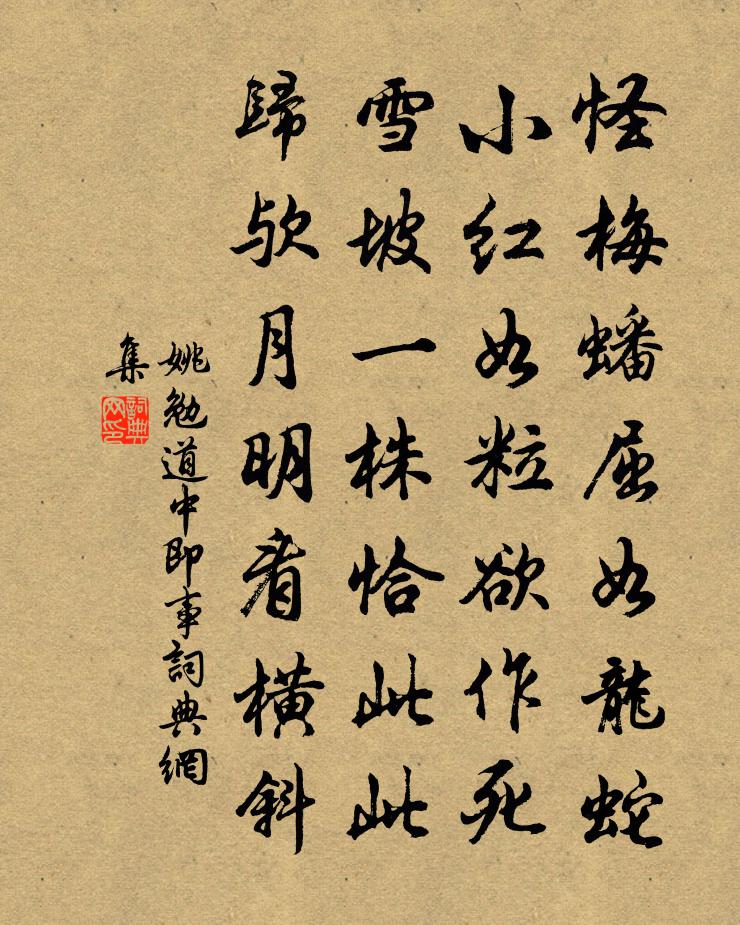 怪梅蟠屈如龍蛇
小红如粒欲作死
雪坡一株恰此此
歸欤月明看橫斜
姚勉道中即事詞典網
集
詞典网印